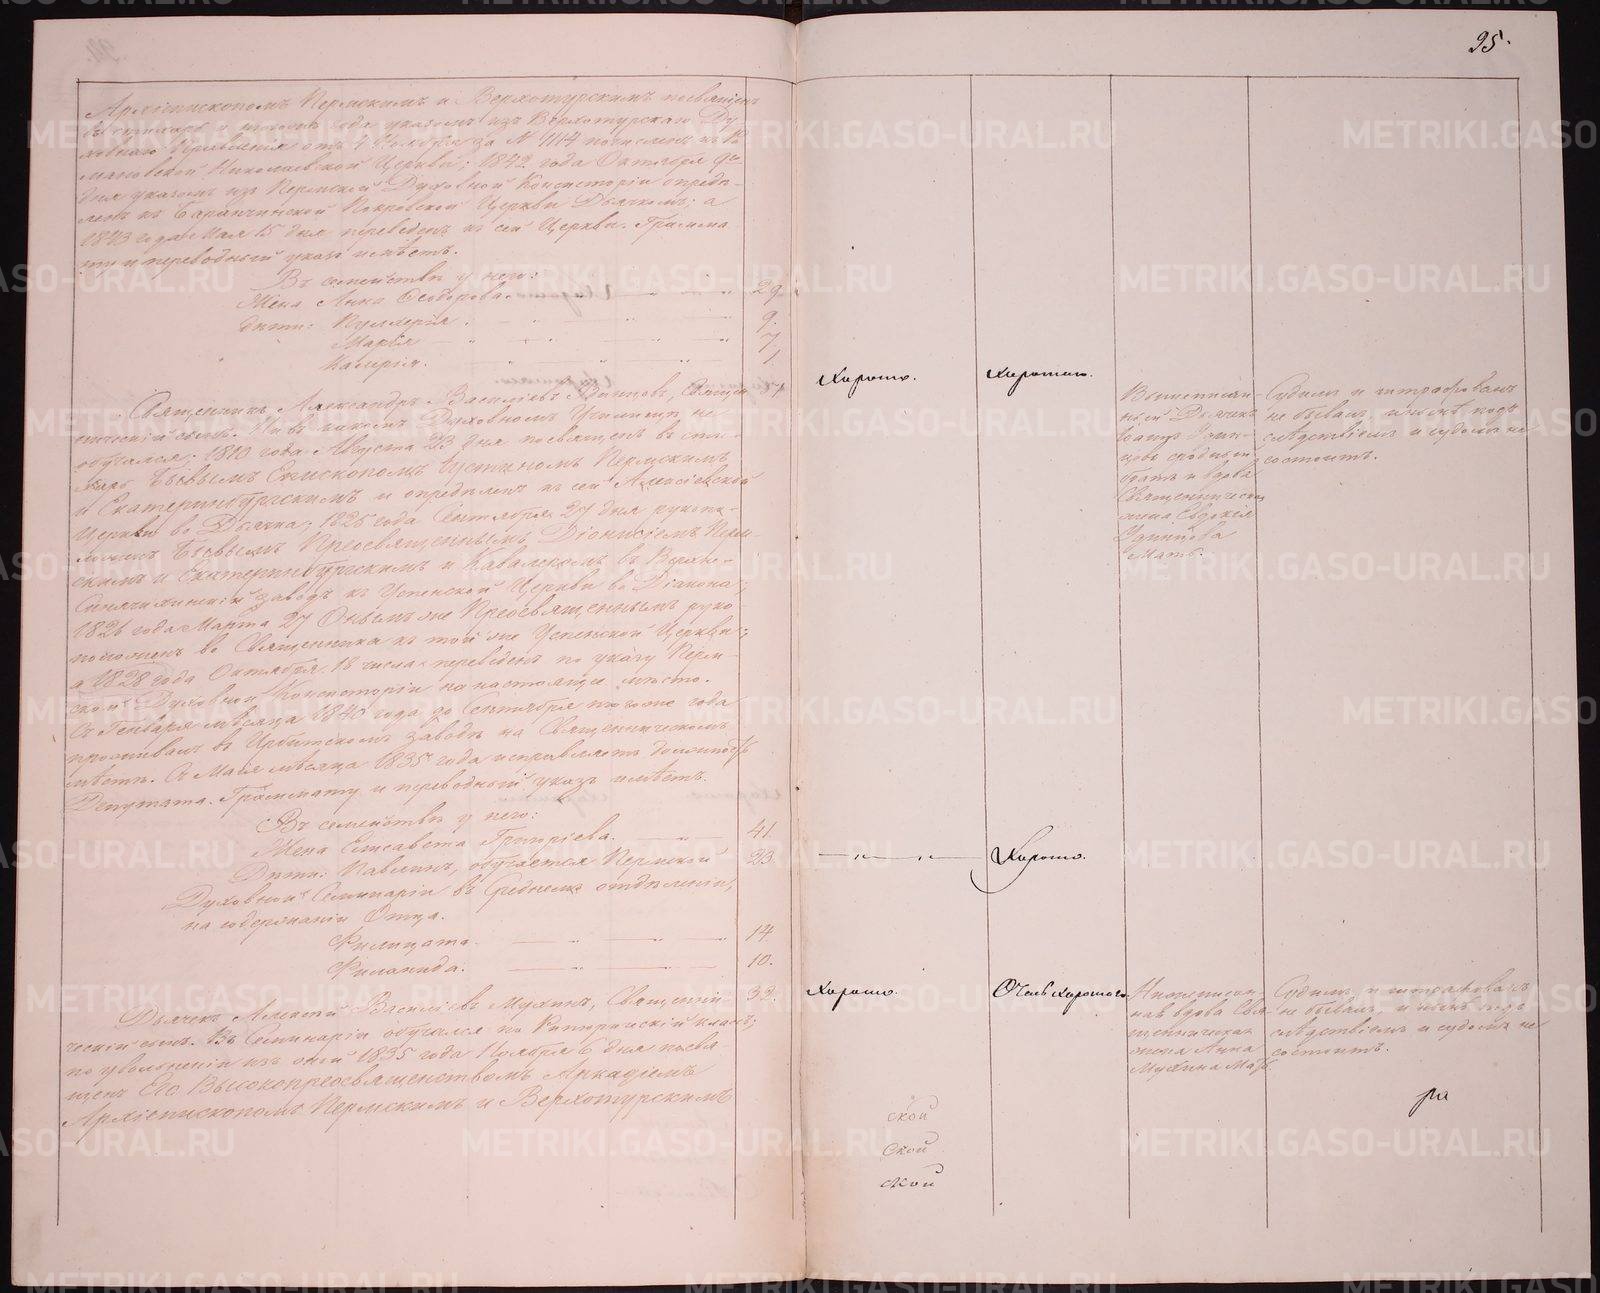 95.
Архіепископомъ Пермскимъ и Верхотурскимъ посвященъ
въ стихарь и того года указомъ изъ Верхотурскаго Ду-
ховнаго Правленія отъ Ноября за N 1114
Николаевской Церкви; 1842 года Октября 9го
дня указомъ изъ Пермской Духовной Консисторіи опредѣ-
ленъ къ Баранчинской Покровской Церкви Дьячкомъ; а
1843 года Мая 15 дня переведенъ къ сей Церкви. Грамма
ту и переводный указъ имѣетъ.
Въ семействѣ у него:
Жена Анна Ѳеодорова. 29.
Дѣти: 9.
Марія 7
Валерія. 1
Священникъ Александръ Василіевъ Удинцовъ, Священ
ническій сынъ. Ни въ какомъ Духовномъ Училищѣ не
обучался; 1810 года Августа 23 дня посвященъ въ сти-
харь бывшимъ Епископомъ Іустиномъ Пермскимъ
и Екатеринбургскимъ и опредѣленъ къ сей Алексіевской
Церкви во Дьячка; 1825 года Сентября 27 дня рукопо-
ложенъ бывшимъ Преосвященнымъ Діонисіемъ Перм-
скимъ и Екатеринбургскимъ и Кавалеромъ въ Верхне-
Синячихинскій заводъ къ Успенской Церкви во Діакона;
1826 года Марта 27 Онымъ же Преосвященнымъ руко-
положенъ во Священника къ той же Успенской Церкви;
а 1828 года Октября 18 числа переведенъ по указу Перм-
ской Духовной Консисторіи на настоящее мѣсто.
Съ Генваря мѣсяца 1840 года до Сентября того же года
проживалъ въ Ирбитскомъ заводѣ на Священническомъ
мѣстѣ. Съ Мая мѣсяца 1835 года исправляетъ должность
Депутата. Граммату и переводный указъ имѣетъ.
Въ семействѣ у него:
Жена Елисавета Григоріева. 41.
Дѣти: Павлинъ, обучается Пермской 23.
Духовной Семинаріи въ Среднемъ отдѣленіи,
на содержаніи Отца.
Филицата. 14.
Филонида. 10.
Дьячекъ Алексій Василіевъ Мухинъ, Священни- 33.
ческій сынъ. Въ Семинаріи обучался по Риторическій классъ;
по увольненіи изъ оной 1835 года Ноября 6 дня посвя-
щенъ Его Высокопреосвященствомъ Аркадіемъ
Архіепископомъ Пермскимъ и Верхотурскимъ
Хорошо.
Хорошаго.
Дьячекъ
Удин-
цовъ родный
братъ и вдова
Священническая
жена Евдокія
Удинцова
Мать.
Судимъ и штрафованъ
не бывалъ, и нынѣ подъ
слѣдствіемъ и судомъ не
состоитъ.
Хорошо.
Хорошо.
Очень хорошаго.
Нижеписан
ная вдова Свя-
щенническая
жена Анна
Мухина Мать.
Судимъ и штрафованъ
не бывалъ, и нынѣ подъ
слѣдствіемъ и судомъ не
состоитъ.
ской
ской
ской
METRIKI.GASO-URAL.RU